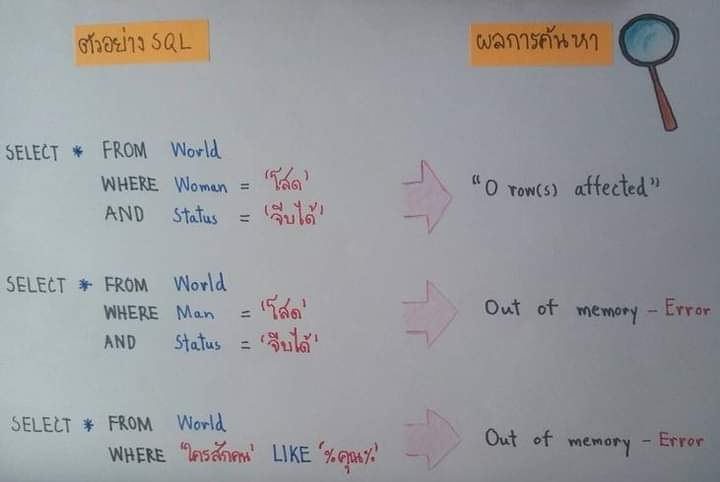 ตัวอย่าง SQL
ผลการค้นหา
SELECT * FROM World
WHERE Woman = 'โสด'
AND Status = 'จีบได้'
"0 row(s) affected"
SELECT * FROM World
WHERE Man = 'โสด'
AND Status = 'จีบได้'
Out of memory - Error
SELECT * FROM World
WHERE 'ใครสักคน' LIKE '%คุณ%'
Out of memory - Error